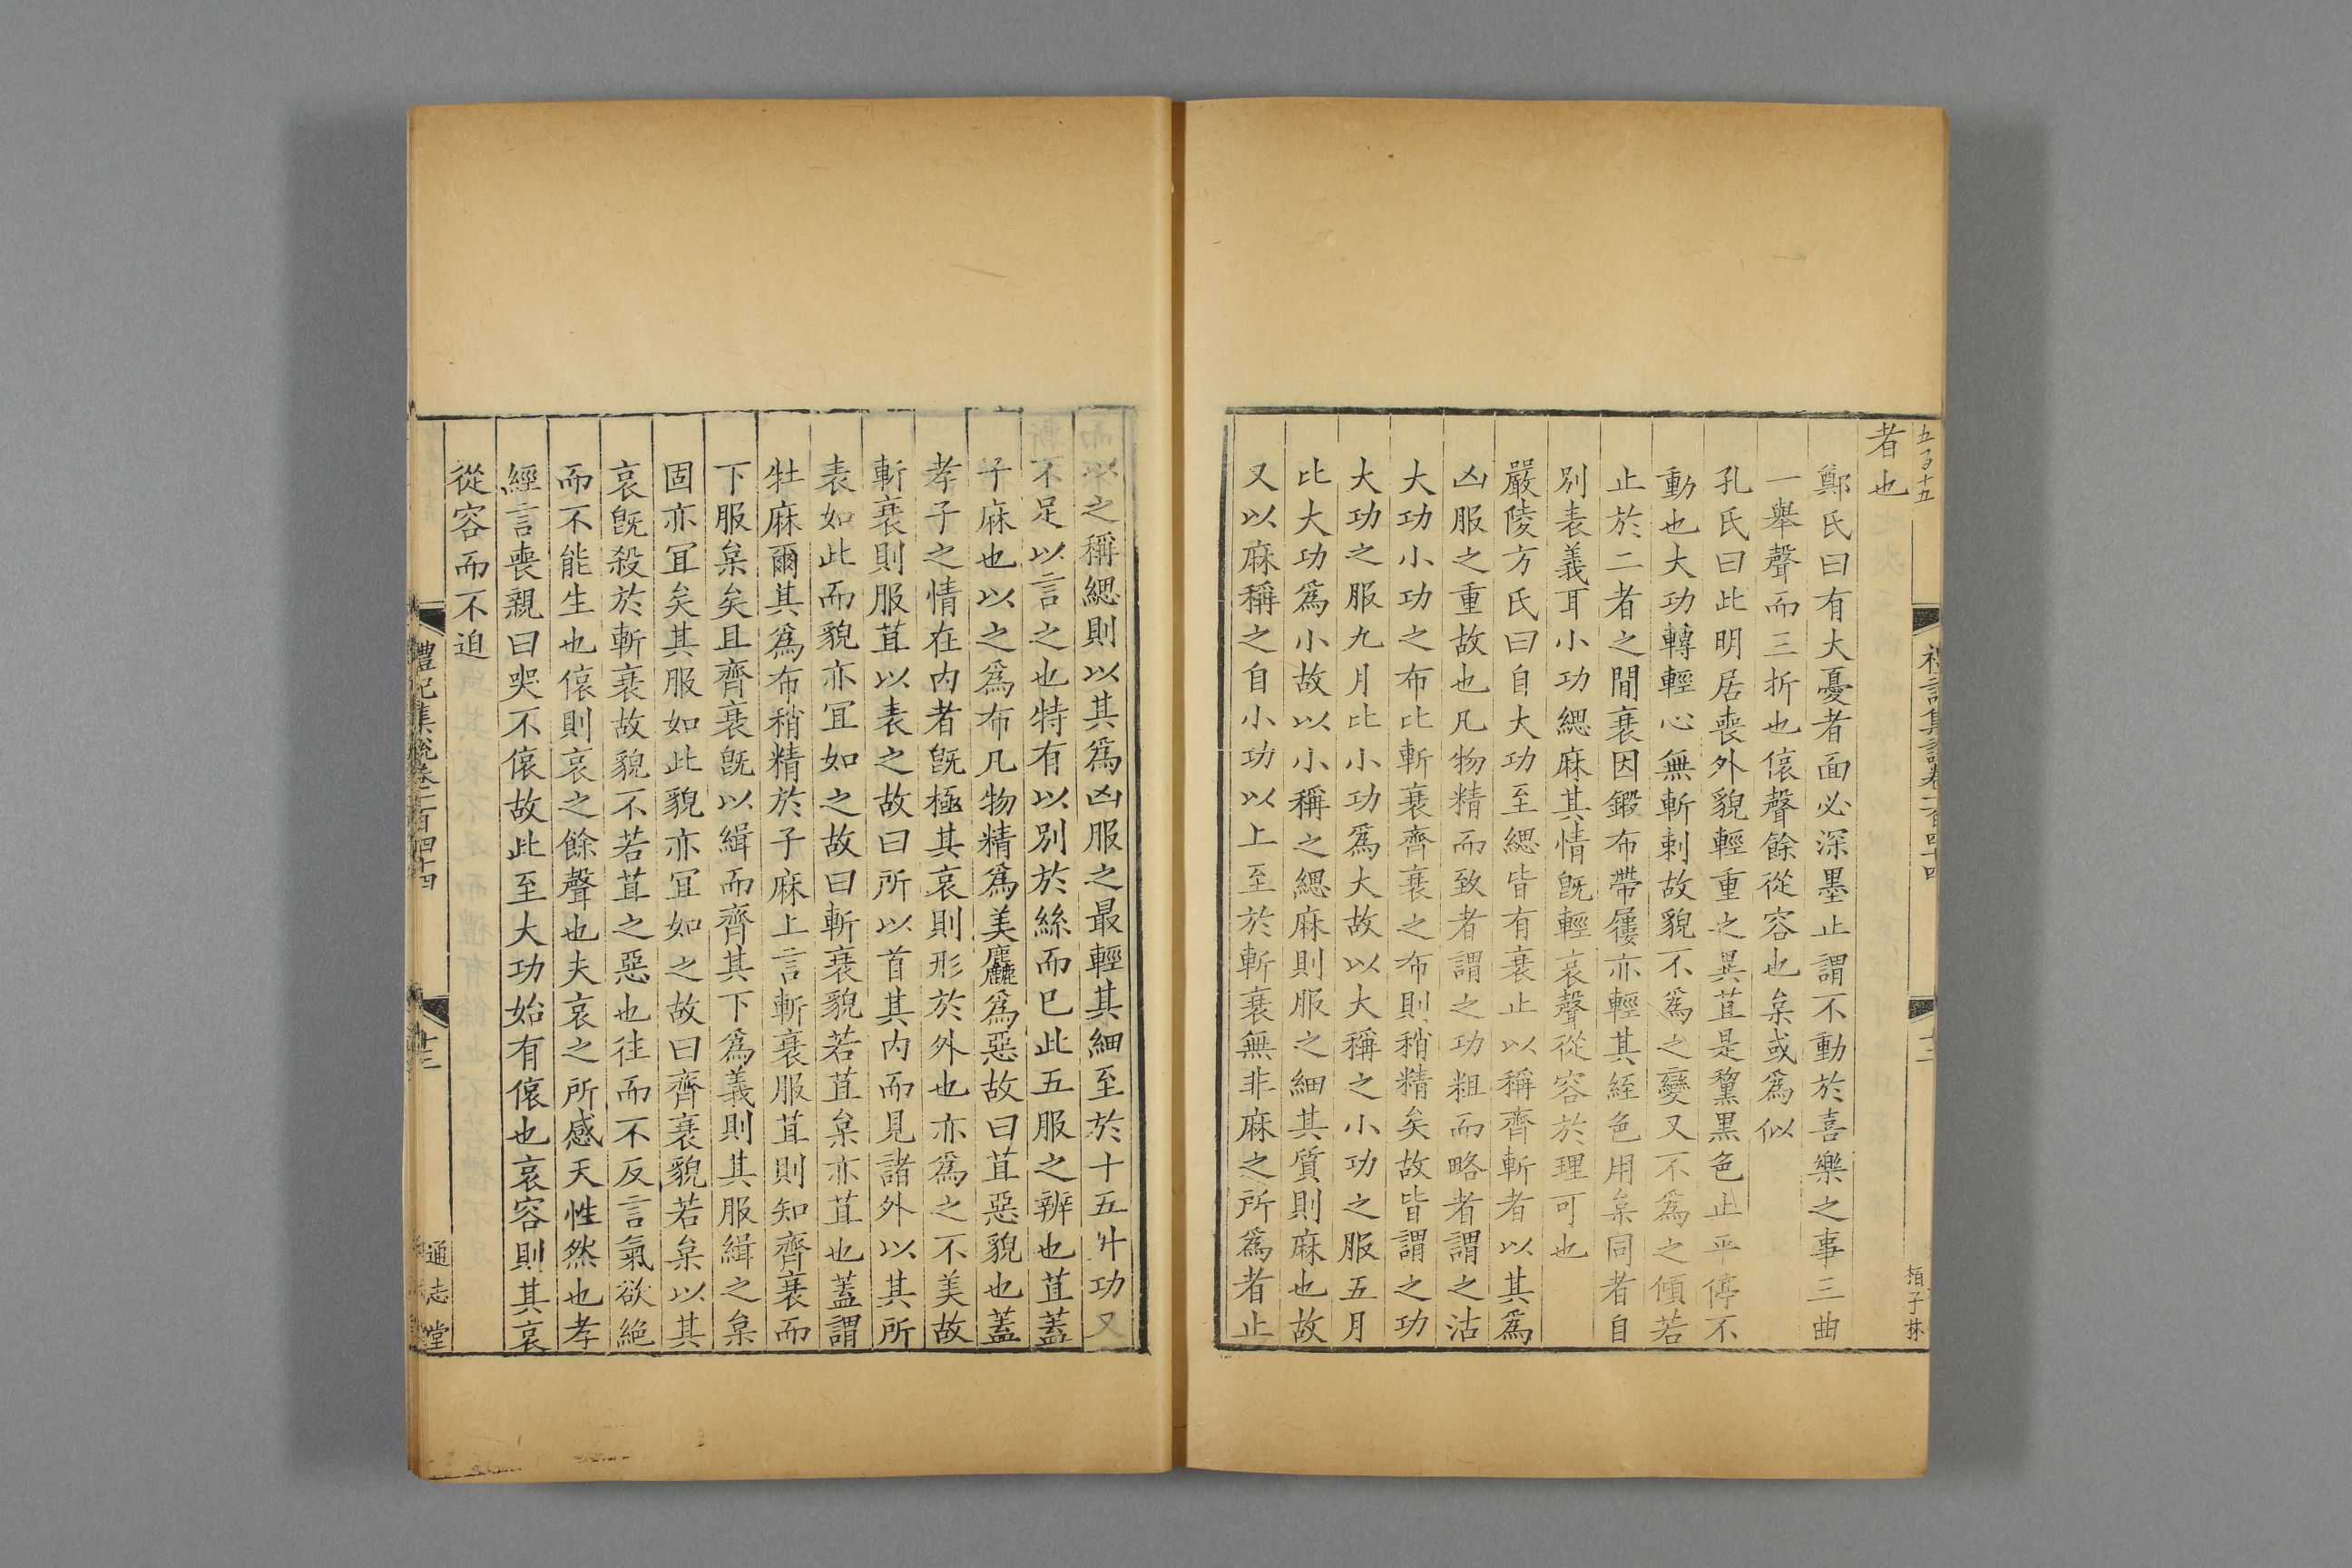 者也
鄭氏曰有大憂者面必深墨止謂不動於喜樂之事三曲
一舉聲而三折也偯聲餘從容也枲或爲似
孔氏曰此明居喪外貌輕重之異苴是黧黑色止平停不
動也大功轉輕心無斬刺故貌不爲之變又不爲之傾若
止於二者之間衰因鍛布帶屨亦輕其絰色用枲同者自
別表義耳小功緦麻其情旣輕哀聲從容於理可也
嚴陵方氏曰自大功至緦皆有衰止以稱齊斬者以其爲
凶服之重故也凡物精而致者謂之功粗而略者謂之沽
大功小功之布比斬衰齊衰之布則稍精矣故皆謂之功
大功之服九月比小功爲大故以大稱之小功之服五月
比大功爲小故以小稱之緦麻則服之細其質則麻也故
又以麻稱之自小功以上至於斬衰無非麻之所爲者止
以之稱緦則以其爲凶服之最輕其細至於十五升功又
不足以言之也特有以別於絲而已此五服之辨也苴蓋
子麻也以之爲布凡物精爲美麤爲惡故曰苴惡貌也蓋
孝子之情在內者旣極其哀則形於外也亦爲之不美故
斬衰則服苴以表之故曰所以首其內而見諸外以其所
表如此而貌亦冝如之故曰斬衰貌若苴枲亦苴也蓋謂
牡麻爾其爲布稍精於子麻上言斬衰服苴則知齊衰而
下服枲矣且齊衰旣以緝而齊其下爲義則其服緝之枲
固亦冝矣其服如此貌亦冝如之故曰齊衰貌若枲以其
哀旣殺於斬衰故貌不若苴之惡也往而不反言氣欲絕
而不能生也偯則哀之餘聲也夫哀之所感天性然也孝
經言喪親曰哭不偯故此至大功始有偯也哀容則其哀
從容而不迫
禮記集說卷一百四十四
通志堂